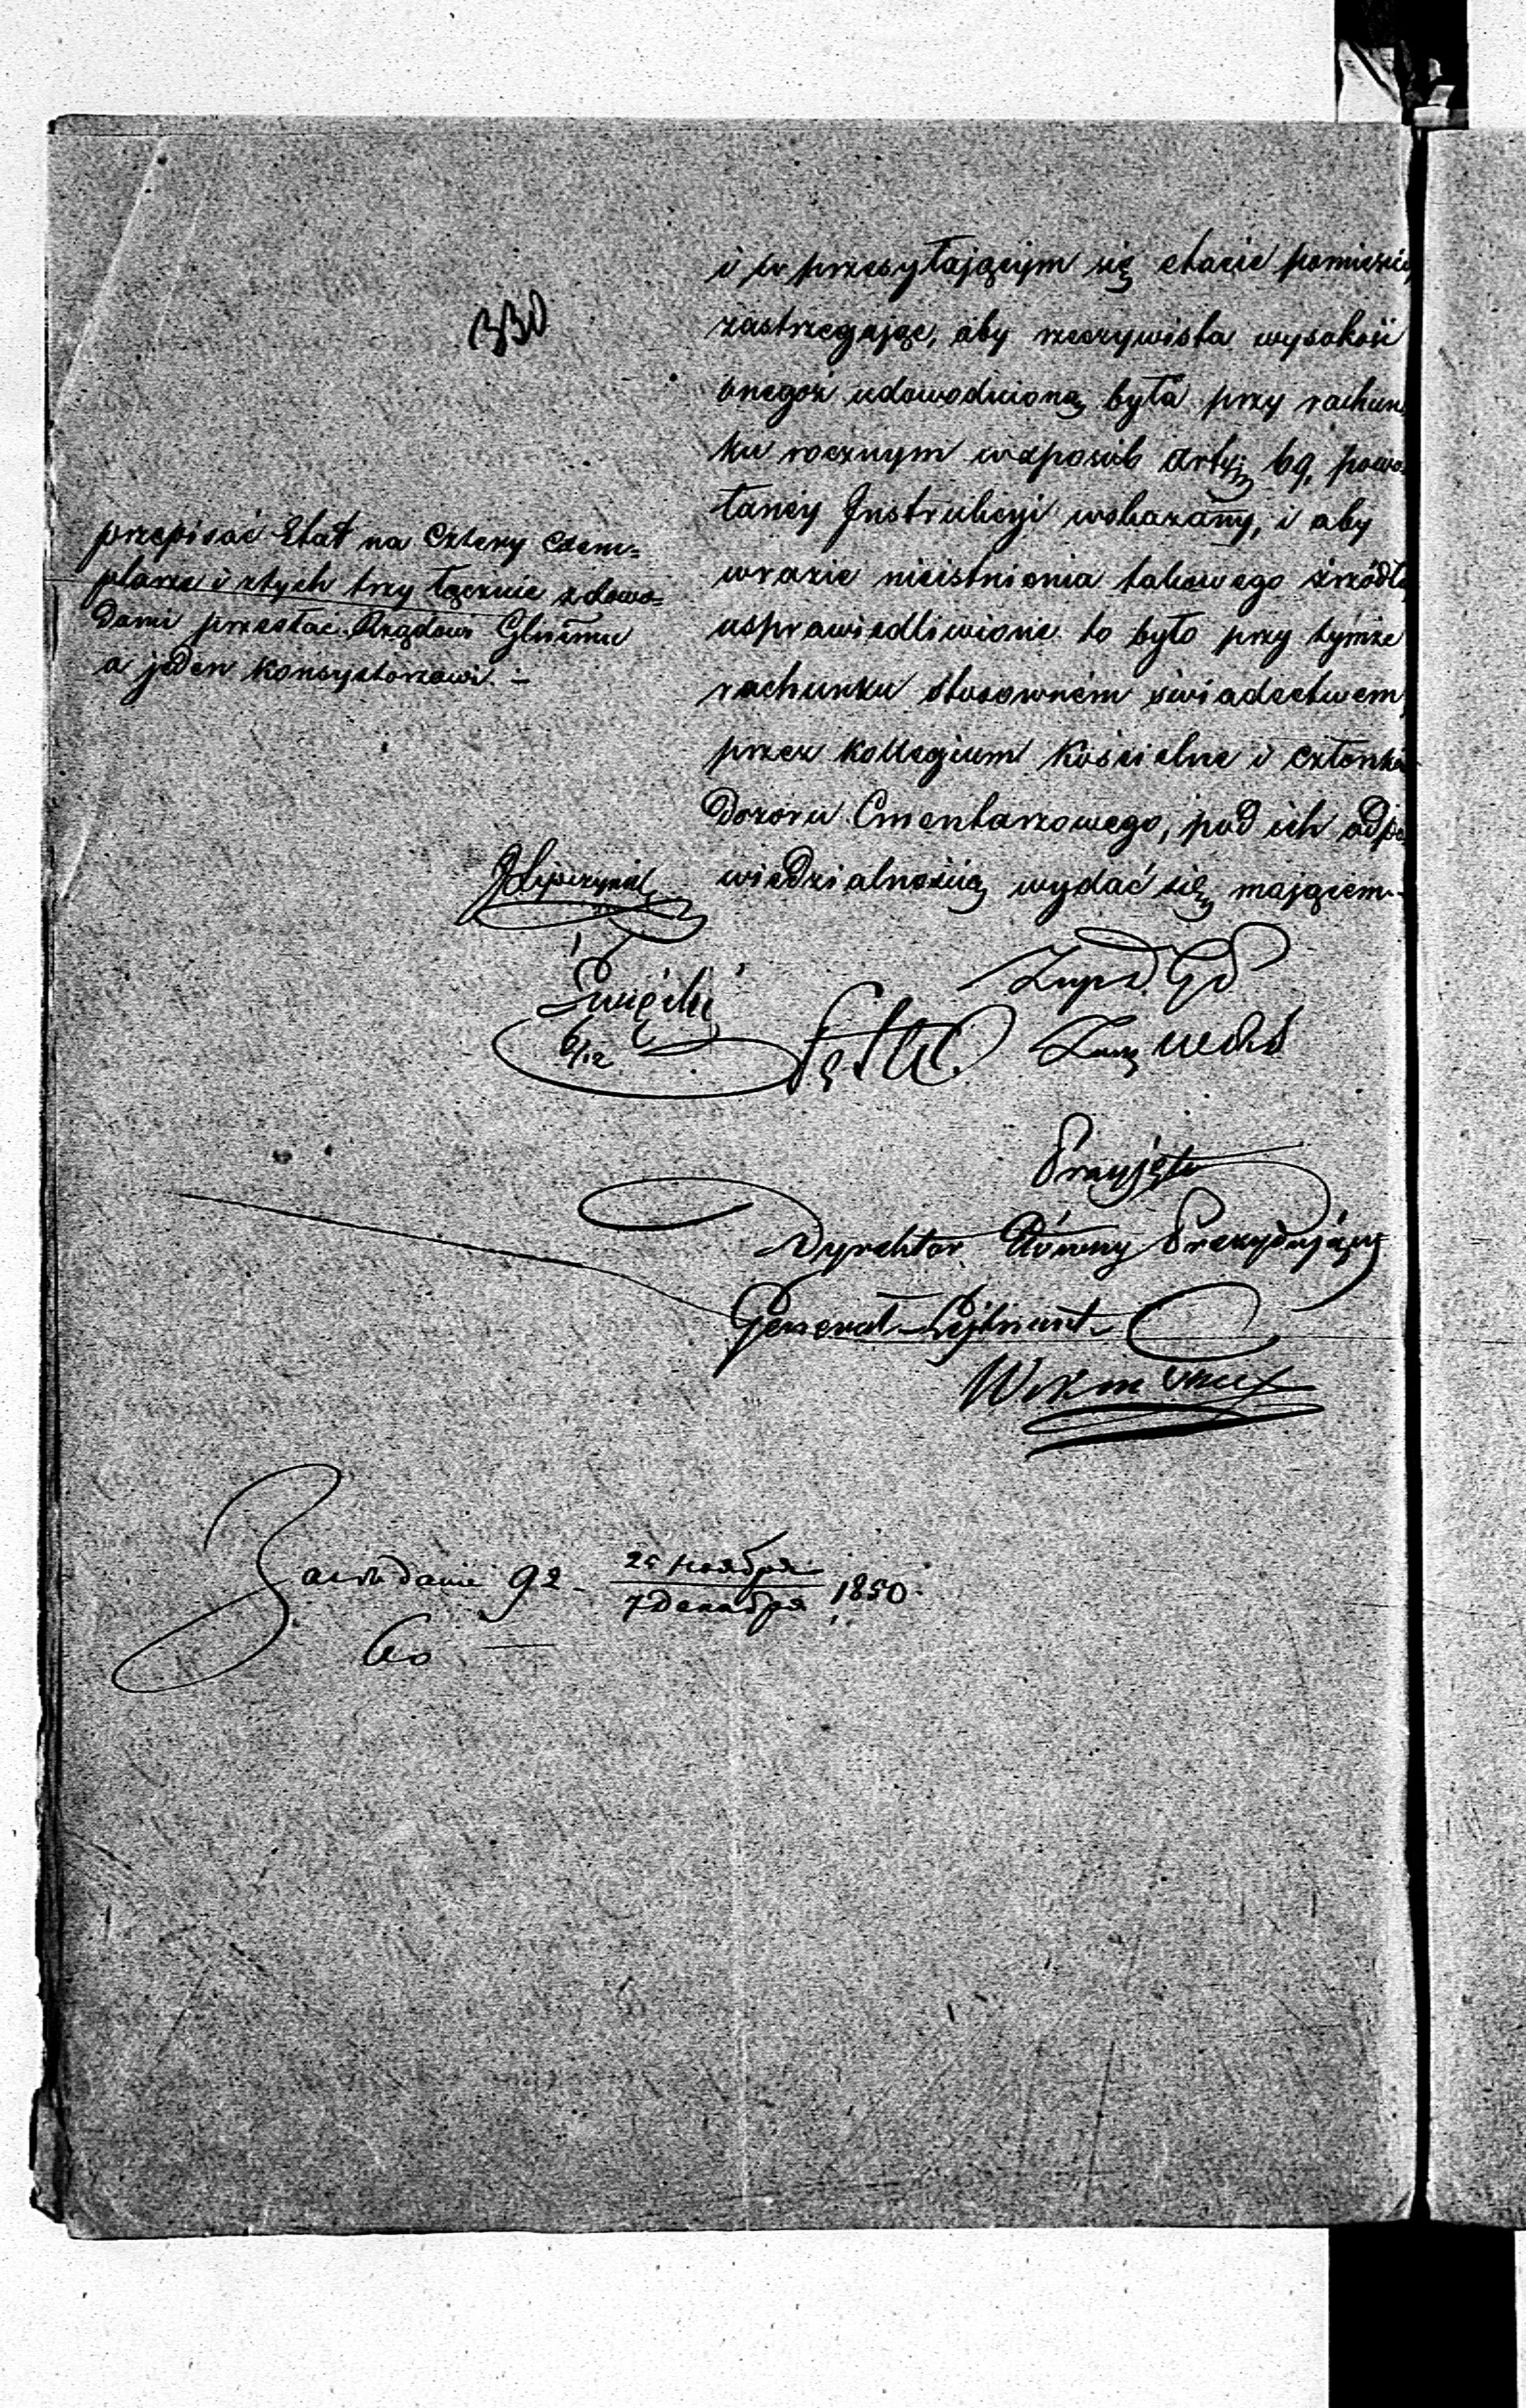 330
i w przesyłającym się etacie pomieścić
zastrzegając, aby rzeczywista wysokość
onegoż udowodnioną była przy rachun
ku rocznym w sposób Artyj 69, powo-
łanéy Instrukcyi wskazany, i aby
wrazie nieistnienia takowego źrzódła
usprawiedliwione to było przy tymże
rachunku stosowném świadectwem,
przez Kollegium Kościelne i członków
Dozoru Cmentarzowego, pod ich odpo
wiedzialnością wydać się mającem.-
przepisać Etat na cztery exem=
plarze i ztych trzy łącznie zdowo=
dami przesłać Rządowi Glnemu
a jeden Konsystorzowi. -
6/12
Przyjęto
Dyrektor Główny Prezydujący
Generał-Lejtnant
Posiedzenie 92 - 25 ноября
7 декабря 1850.